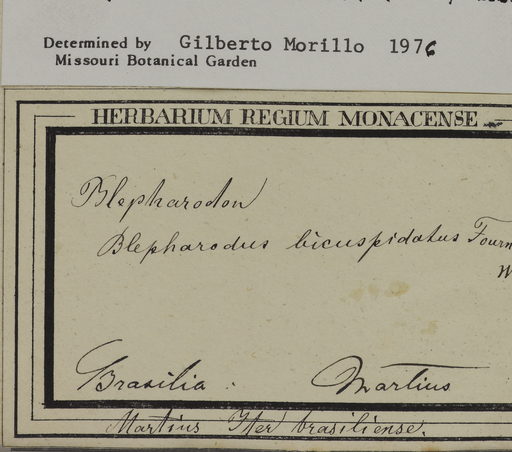 Determined by Gilberto Morillo 1976
Missouri Botanical Garden
HERBARIUM REGIUM MONACENSE
Blepharodon
Blepharodus bicuspidatus Fourn
Brasilia. Martius
Martius Iter brasiliense.